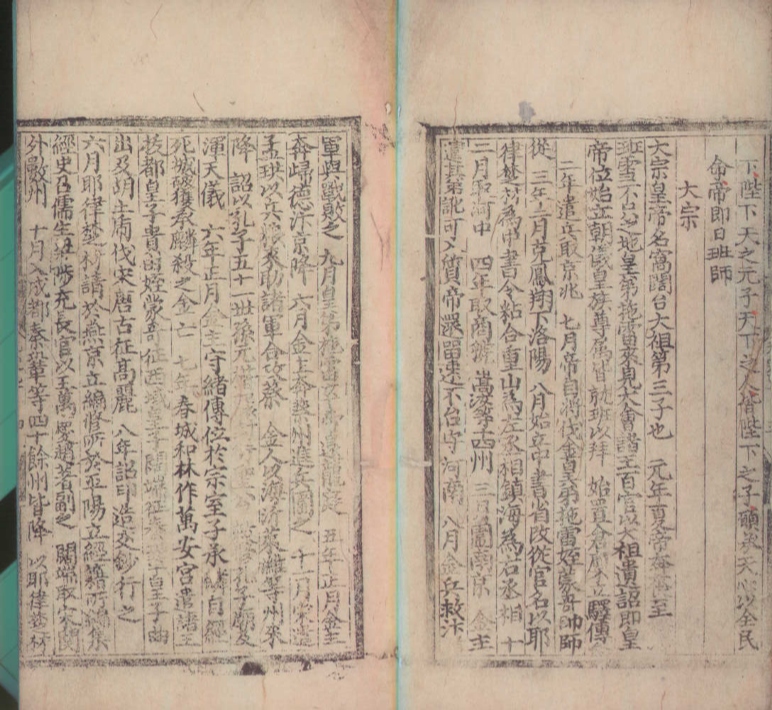 下陛下天之元子天下之人皆陛下之子願矣天心以全民
命帝即日班師
大宗
大宗皇帝名窩闊台大祖第三子也 元年夏帝奔喪至
班雪不台之地皇弟拖雷來見大會諸王百官以大祖遺詔即皇
帝位始立朝儀皇族尊屬皆就班以拜 始置倉廩立驛傳
二年遣兵取京兆 七月帝自將伐金皇弟拖雷姪蒙哥帥師
從 三年二月克鳳翔下洛陽 八月始立中書省改從官名以耶
律楚材為中書令粘合重山為左丞相鎮海為右丞相 十
二月取河中 四年取商 嵩汝等四州 三月圍南京 金主
遣其弟訛可入質帝還留速不台守河南 八月金兵救汴
軍與戰敗之 九月皇弟拖雷卒帝還龍庭 五年正月金主
奔歸德汴京降 六月金主奔蔡州進兵圍之 十一月宋遣
孟珙以兵來助諸軍合攻蔡 金人以海沂萊濰等州來
降 詔以孔子五十一世孫元措 孔子廟及
渾天儀 六年正月金主守緒傳位於宗室子承麟自經
死城破獲承麟殺之金亡 七年春城和林作萬安宮遣諸王
拔都皇子貴由姪蒙哥征西域皇子闊端征秦 皇子曲
出及胡土虎伐宋唐古征高麗 八年詔印造交鈔行之
六月耶律楚材請於燕京立編修所於平陽立經籍所編集
經史召儒生梁陟充長官以王萬慶趙著副之 闊端取宋關
外數州 十月入成都秦鞏等四十餘州皆降 以耶律楚材